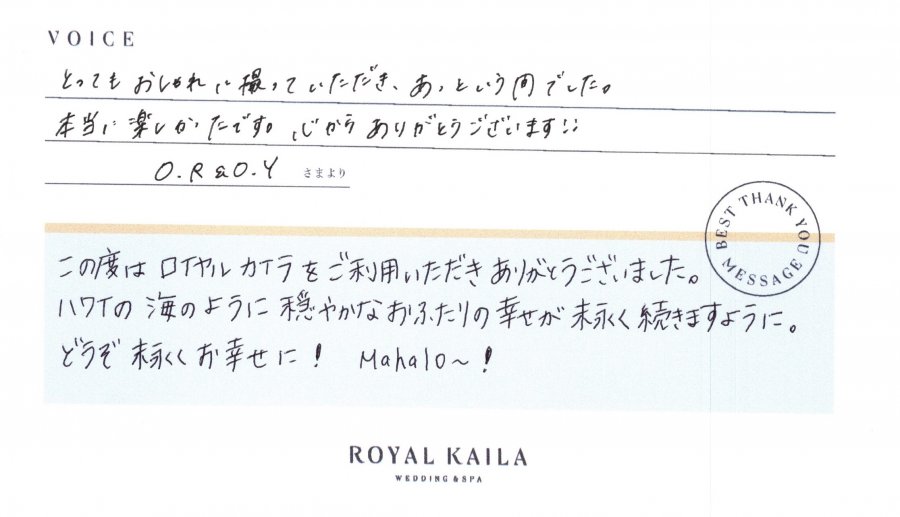 VOICE
とってもおしゃれに撮っていただき、あっという間でした。
本当に楽しかったです。心からありがとうございます!!
O.R&O.Y さまより
BEST THANK YOU MESSAGE
この度はロイヤルカイラをご利用いただきありがとうございました。
ハワイの海のように穏やかなおふたりの幸せが末永く続きますように。
どうぞ末永くお幸せに! Mahalo~!
ROYAL KAILA
WEDDING & SPA